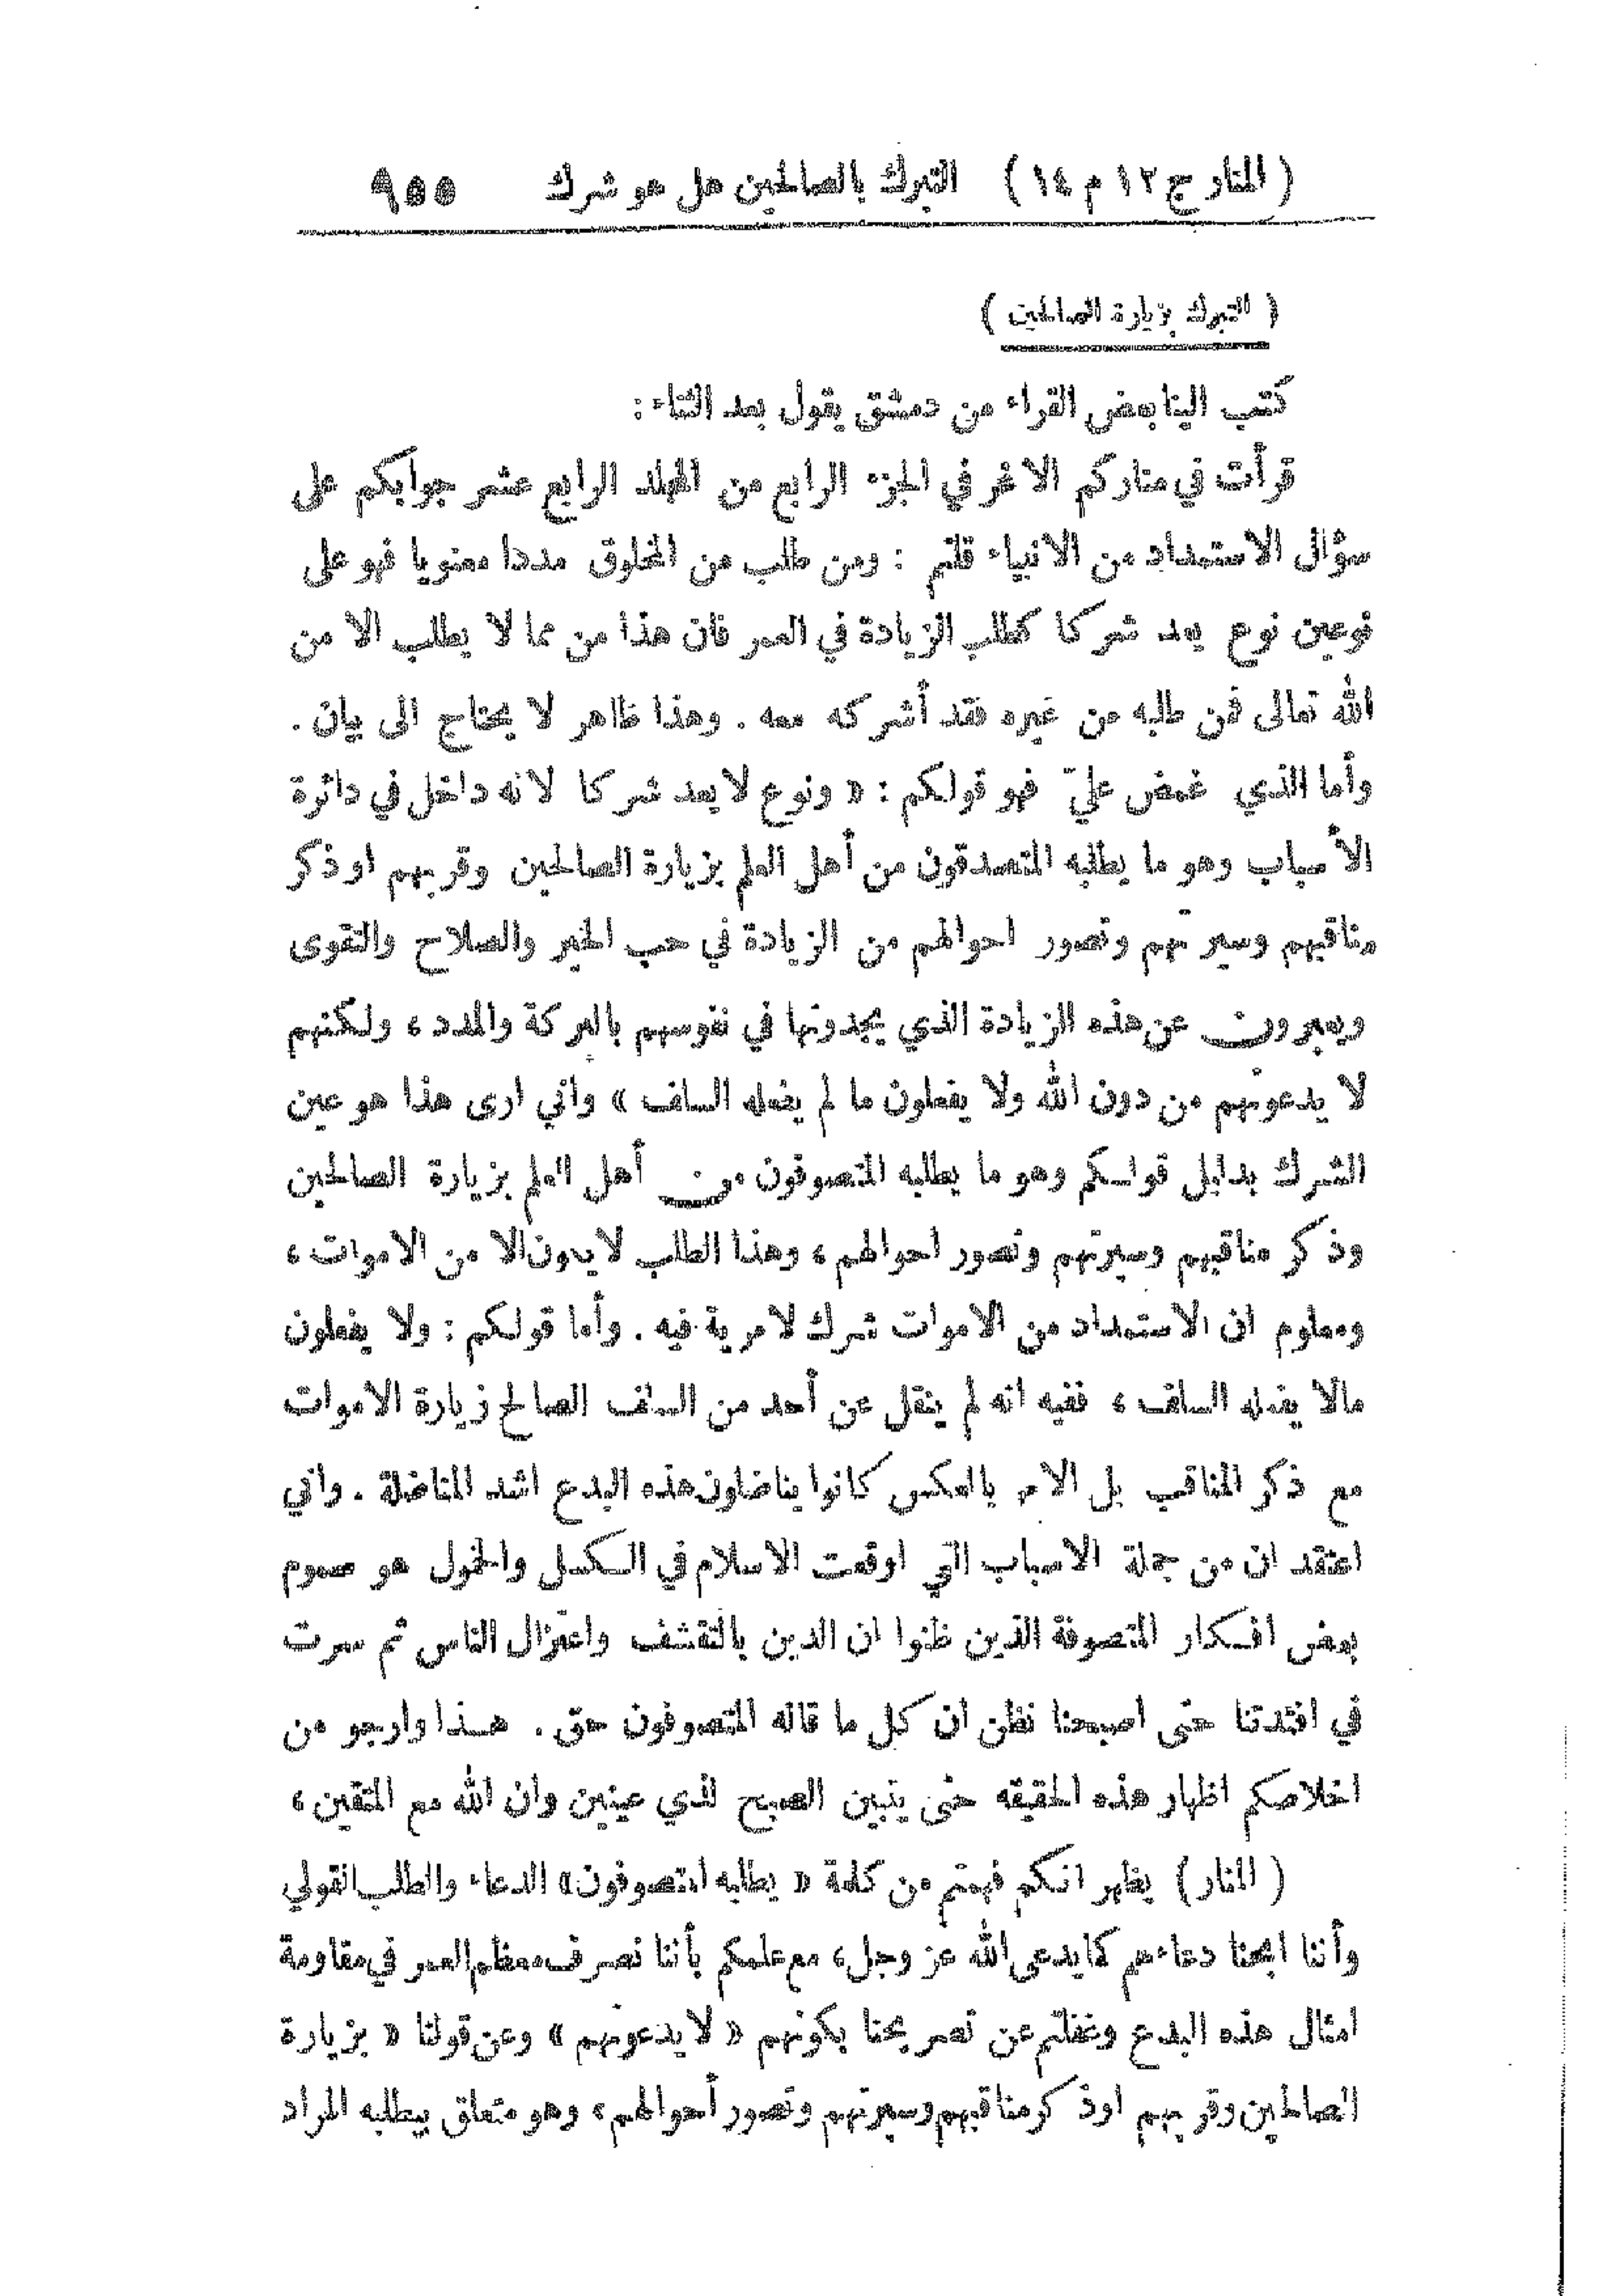 (المنار ج ١٢ م ١٤) التبرك بالصالحين هل هو شرك ٩٥٥
( التبرك بزيارة الصالحين )
كتب الينا بعض القراء من دمشق يقول بعد الثناء :
قرأت في مناركم الاغر في الجزء الرابع من المجلد الرابع عشر جوابكم على
سؤال الاستمداد من الانبياء قلتم : ومن طلب من المخلوق مددا معنويا فهو على
نوعين نوع يعد شركا كطلب الزيادة في العمر فان هذا من مما لا يطلب الا من
الله تعالى فمن طلبه من غيره فقد أشركه معه . وهذا ظاهر لا يحتاج الى بيان .
وأما الذي غمض عليّ فهو قولكم : « ونوع لا يعد شركا لانه داخل في دائرة
الأسباب وهو ما يطلبه المتصدقون من أهل العلم بزيارة الصالحين وقربهم او ذكر
مناقبهم وسيرتهم وتصور احوالهم من الزيادة في حب الخير والصلاح والتقوى
ويعبرون عن هذه الزيادة الذي يجدونها في نفوسهم بالبركة والمدد ، ولكنهم
لا يدعونهم من دون الله ولا يفعلون ما لم يفعله السلف » واني ارى هذا هو عين
الشرك بدليل قولكم وهو ما يطلبه المتصوفون من أهل العلم بزيارة الصالحين
وذكر مناقبهم وسيرتهم وتصور احوالهم ، وهذا الطلب لا يكون الا من الاموات ،
ومعلوم ان الاستمداد من الاموات شرك لا مرية فيه . وأما قولكم : ولا يفعلون
مالا يفعله السلف ، ففيه انه لم ينقل عن أحد من السلف الصالح زيارة الاموات
مع ذكر المناقب بل الامر بالعكس كانوا يناضلون هذه البدع اشد المناضلة . واني
اعتقد ان من جملة الاسباب التي اوقعت الاسلام في الكسل والخمول هو سموم
بعض افكار المتصوفة الذين ظنوا ان الدين بالتقشف واعتزال الناس ثم سرت
في افئدتنا حتى اصبحنا نظن ان كل ما قاله المتصوفون حق . هذا وارجو من
اخلاصكم اظهار هذه الحقيقه حتى يتبين الصبح لذي عينين وان الله مع المتقين ،
( المنار ) يظهر انكم فهمتم من كلمة « يطلبه المتصوفون » الدعاء والطلب القولي
وأننا ابحنا دعاءهم كما يدعى الله عز وجل ، مع علمكم بأننا نصرف معظم العمر في مقاومة
امثال هذه البدع وغفلتم عن تصريحنا بكونهم « لا يدعونهم » وعن قولنا « بزيارة
الصالحين وقربهم اوذكر مناقبهم وسيرتهم وتصور أحوالهم ، وهو متعلق بيطلبه المراد